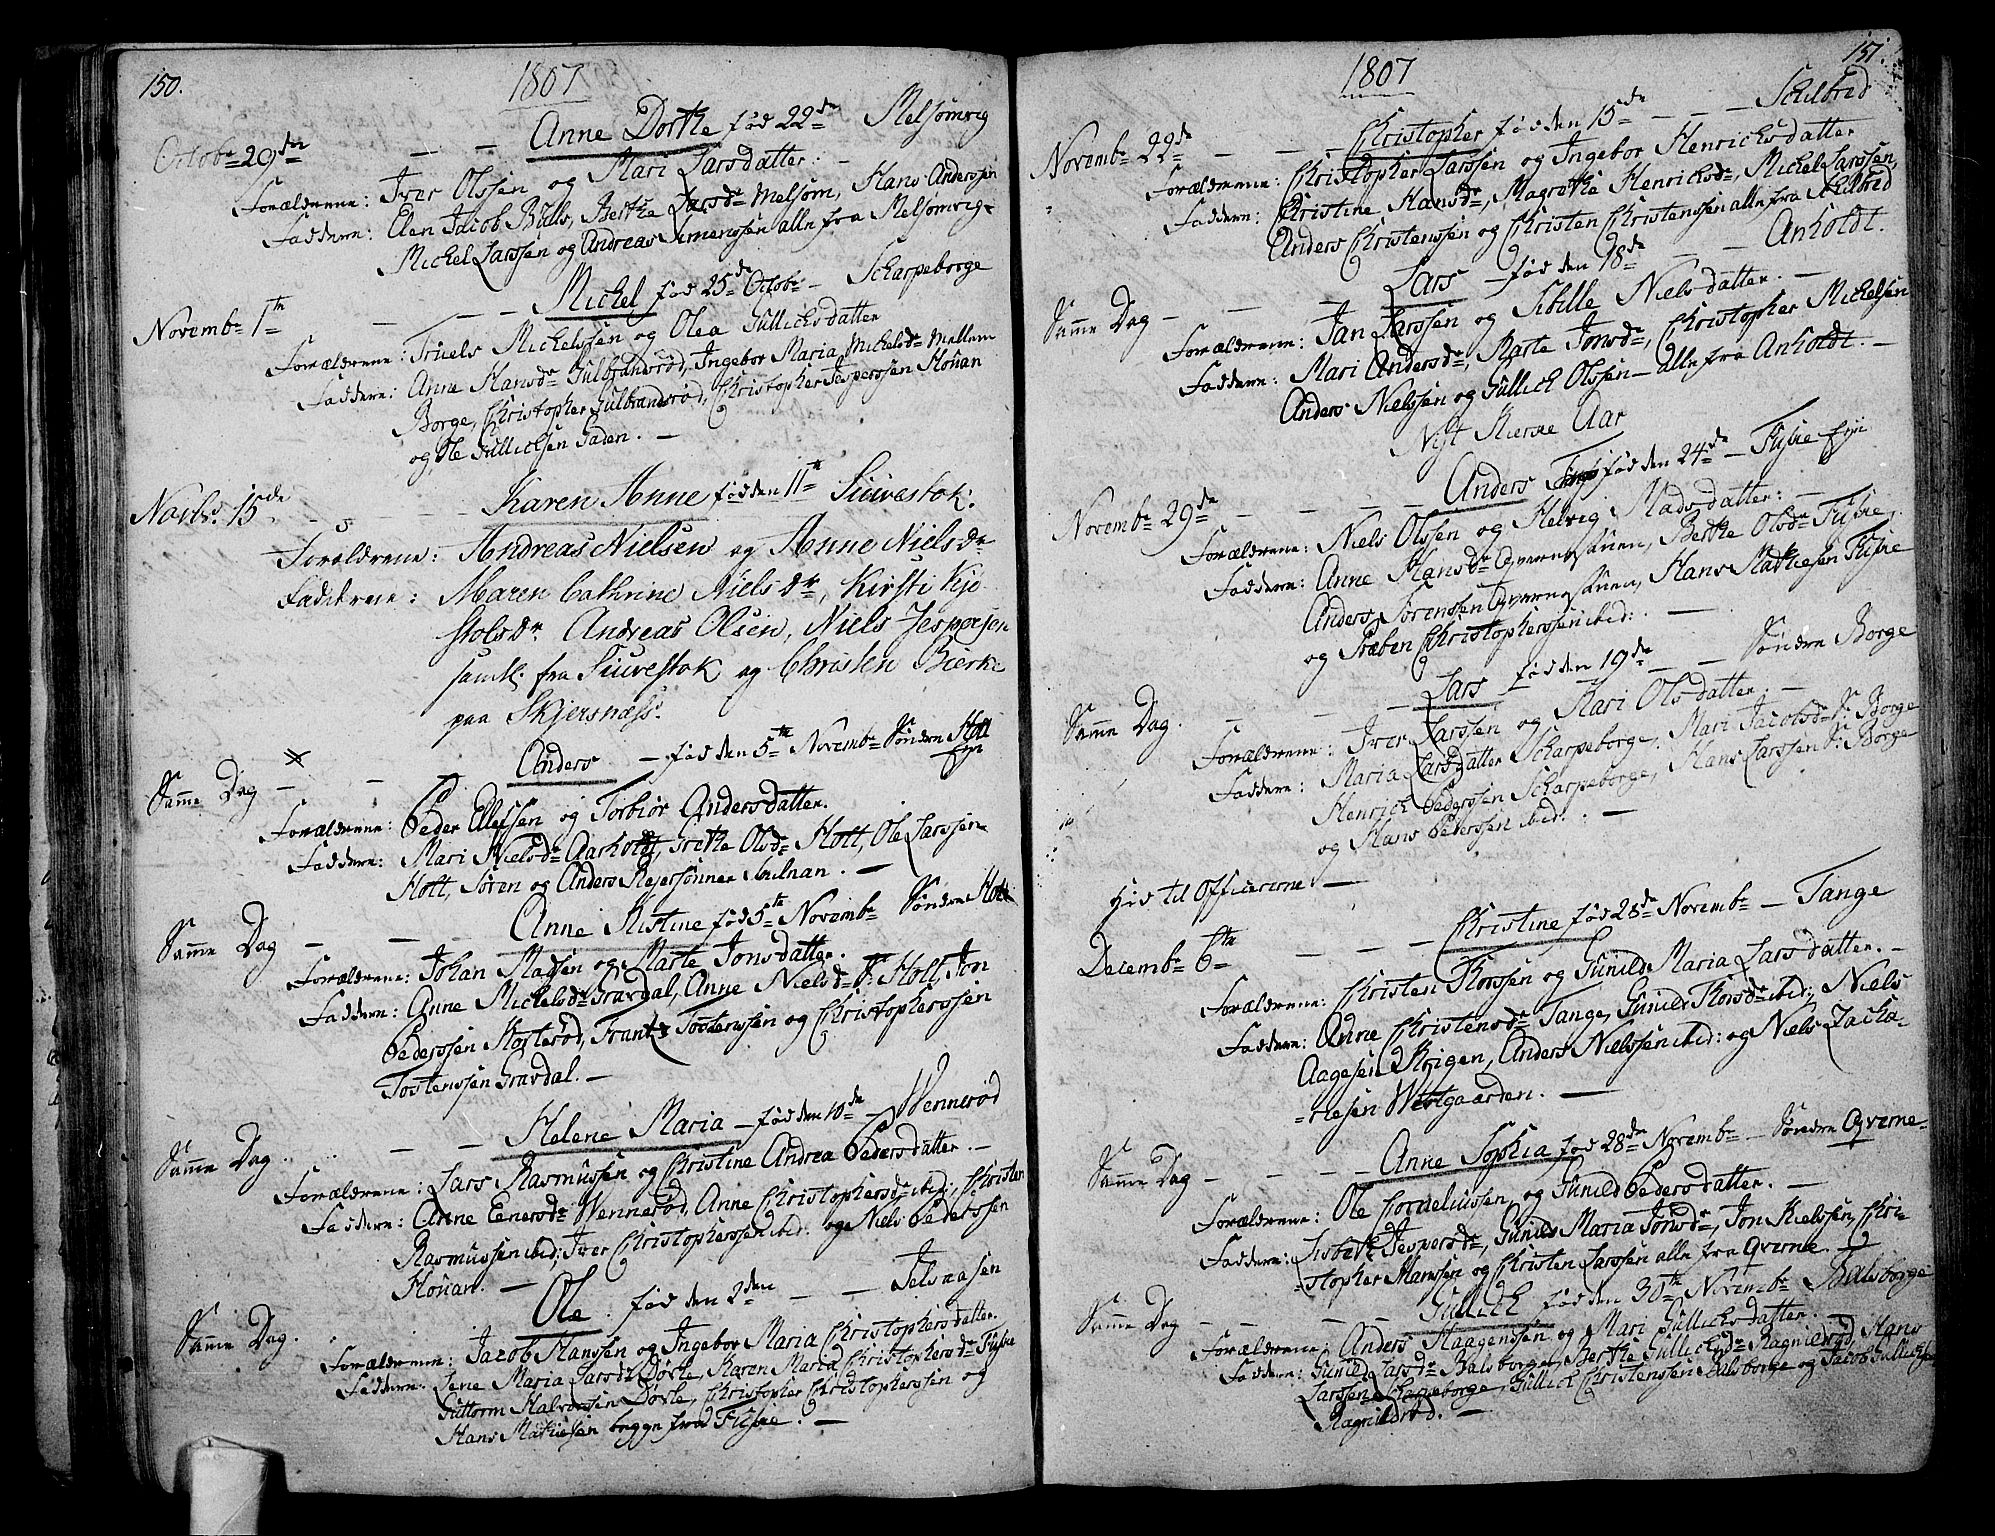 150.
1807
Octobr 29de — — Anne Dorthe fød 22de Melsomvig
Forældrene: Iver Olssen og Mari Larsdatter. —
Faddere: Elen Jacob Bulls, Berthe Larsdr Melsom, Hans Anderssen
Michel Larssen og Andreas Simenssen alle fra Melsomvig.
Novembr 1te — — Michel fød 25de Octobr — Scharpeborge
Forældrene: Truels Michelssen og Olea Gullichsdatter
Faddere: Anne Hansdr Gulbrandsrød, Ingebor Maria Michelsdr Mellem
Borge, Christopher Gulbrandsrød, Christopher Jesperssen Houan
og Ole Gullichsen Gaden. —
Novbr. 15de — — Karen Anne fød den 11te Siuvestok:
Forældrene: Andreas Nielsen og Anne Nielsdr
Fadderene: Maren Cathrine Nielsdr, Kirsti Kje
stolsdr Andreas Olsen, Niels Jespersen
samtl. fra Siuvestok og Christen Bierke
paa Skjersnæss.
Samme Dag — — Anders — fød den 5te Novembr Søndre Holt
Eje
Forældrene: Peder Ellefsen og Torbiør Andersdatter.
Faddere: Mari Nielsdr Aarholdt, Grethe Olsdr Holt, Ole Larssen
Holt, Søren og Anders Rejersønner Sulnan. —
Samme Dag — — Anne Kistine fød 5te Novembr Søndre Holt
Forældrene: Johan Madsen og Marte Jonsdatter.
Faddere: Anne Michelsdr Gravdal, Anne Nielsdr S: Holt, Jon
Pederssen Korterød, Frantz Tostenssen og Christopherssen
Tostenssen Gravdal. —
Samme Dag. — — Helene Maria — fød den 10de Wennerød
Forældrene: Lars Rasmussen og Christine Andrea Pedersdatter. —
Faddere: Anne Enersdr Wennerød, Anne Christophersdr ibid: Christen
Rasmussen ibid: Iver Christopherssen ibid: og Niels Pederssen
Houan. —
Samme Dag. Ole. fød den 2den — — Jelsaasen
Forældrene: Jacob Hanssen og Ingebor Maria Christophersdatter.
Faddere: Lene Maria Larsdr Dørke, Karen Maria Christophersdr Fuske
Guttorm Halvorsen Dørke, Christopher Christopherssen og
Hans Mathiesen begge fra Fuske. —
151.
1807
Novembr 22de — — Christopher fød den 15de — — Schilbred
Forældrene: Christopher Larssen og Ingebor Henrichsdatter
Faddere: Christine Hansdr, Magrethe Henrichsdr, Michel Larssen,
Anders Christenssen og Christen Christenssen alle fra Schilbred
Samme Dag — — Lars — fød den 18de — Anholdt.
Forældrene: Jan Larssen og Sibille Nielsdatter. —
Faddere: Mari Andersdr, Marte Jonsdr, Christopher Michelsen
Anders Nielssen og Gullich Olssen — alle fra Anholdt. —
Nyt Kierke Aar
Novembr 29de — — — Anders fød den 24de — Fuske Eje
Forældrene: Niels Olssen og Helvig Madsdatter: —
Faddere: Anne Hansdr Qverneqauen, Berthe Olsdr Fuske,
Anders Sørenssen Qverneqauen, Hans Mathiesen Fuske
og Preben Christopherssen ibid: —
Samme Dag. — — Lars fød den 19de — — Søndre Borge
Forældrene: Iver Larssen og Kari Olsdatter: —
Faddere: Maria Larsdatter Scharpeborge, Mari Jacobsdr S: Borge
Henrich Pederssen Scharpeborge, Hans Larssen S: Borge
og Hans Pederssen ibid: —
Hid til Officierne —
Decembr 6te — — Christine fød 28de Novembr — Tange
Forældrene: Christen Thorssen og Gunild Maria Larsdatter. —
Faddere: Anne Christensdr Tange, Gunild Thorsdr ibid:, Niels
Aagesen Krigen, Anders Nielssen ibid: og Niels Zacha-
-riesen Westgaarden. —
Samme Dag — — — Anne Sophia fød 28de Novembr — Søndre Qverne
Forældrene: Ole Cordeliussen, og Gunild Pedersdatter. —
Faddere: Lisbeth Jespersdr, Gunild Maria Jonsdr, Jon Nielssen, Chri-
-stopher Manssen og Christen Larssen alle fra Qverne. —
Samme Dag — — — Gullich fød den 30te Novembr Balsborge
Forældrene: Anders Haagenssen og Mari Gullichsdatter: —
Faddere: Gunild Larsdr Balsborge, Berthe Gullichsdr Ragnildrød, Hans
Larssen Scharpeborge, Gullich Christenssen Balsborge og Jacob Gullichsen
Ragnildrød. —